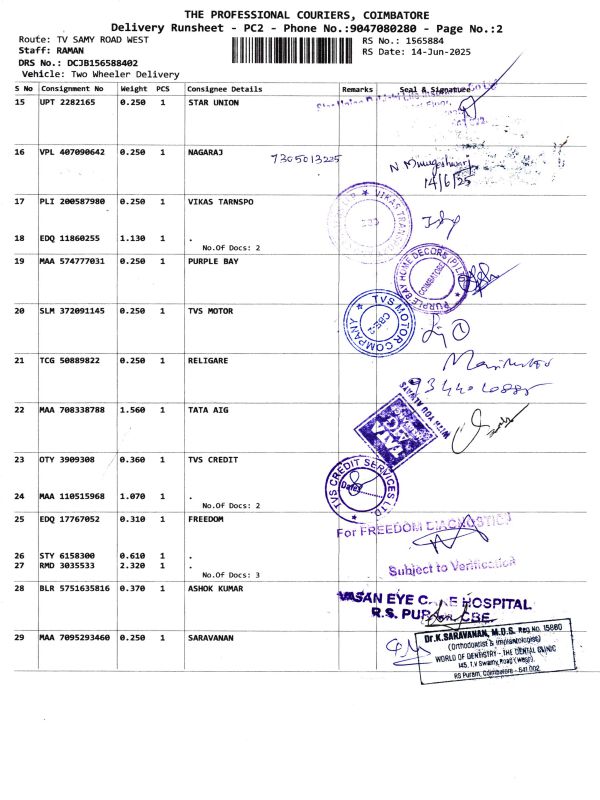 THE PROFESSIONAL COURIERS, COIMBATORE
Delivery Runsheet - PC2 - Phone No.:9047080280 - Page No.:2
Route: TV SAMY ROAD WEST
RS No.: 1565884
Staff: RAMAN
RS Date: 14-Jun-2025
DRS No.: DCJB156588402
Vehicle: Two Wheeler Delivery
S No Consignment No Weight PCS Consignee Details Remarks Seal & Signature
15 UPT 2282165 0.250 1 STAR UNION
16 VPL 407090642 0.250 1 NAGARAJ 7305013225
N Murugeshwari
14/6/25
17 PLI 200587980 0.250 1 VIKAS TARNSPO
VIKAS TRAN
18 EDQ 11860255 1.130 1 .
No.Of Docs: 2
19 MAA 574777031 0.250 1 PURPLE BAY
PURPLE BAY HOME DECORS (P) LTD
COIMBATORE
20 SLM 372091145 0.250 1 TVS MOTOR
TVS MOTOR COMPANY
CBE-2
21 TCG 50889822 0.250 1 RELIGARE
22 MAA 708338788 1.560 1 TATA AIG
WITH YOU ALWAYS
23 OTY 3909308 0.360 1 TVS CREDIT
TVS CREDIT SERVICES LTD.
Date:
24 MAA 110515968 1.070 1 .
No.Of Docs: 2
25 EDQ 17767052 0.310 1 FREEDOM
For FREEDOM DIAGNOSTICS
26 STY 6158300 0.610 1 .
27 RMD 3035533 2.320 1 .
No.Of Docs: 3
Subject to Verification
28 BLR 5751635816 0.370 1 ASHOK KUMAR
VASAN EYE CARE HOSPITAL
R.S. PURAM CBE.
29 MAA 7095293460 0.250 1 SARAVANAN
Dr.K.SARAVANAN, M.D.S. Reg.No. 15880
(Orthodontist & Implantologist)
WORLD OF DENTISTRY - THE DENTAL CLINIC
145, T.V Swamy Road (West),
RS Puram, Coimbatore - 641 002